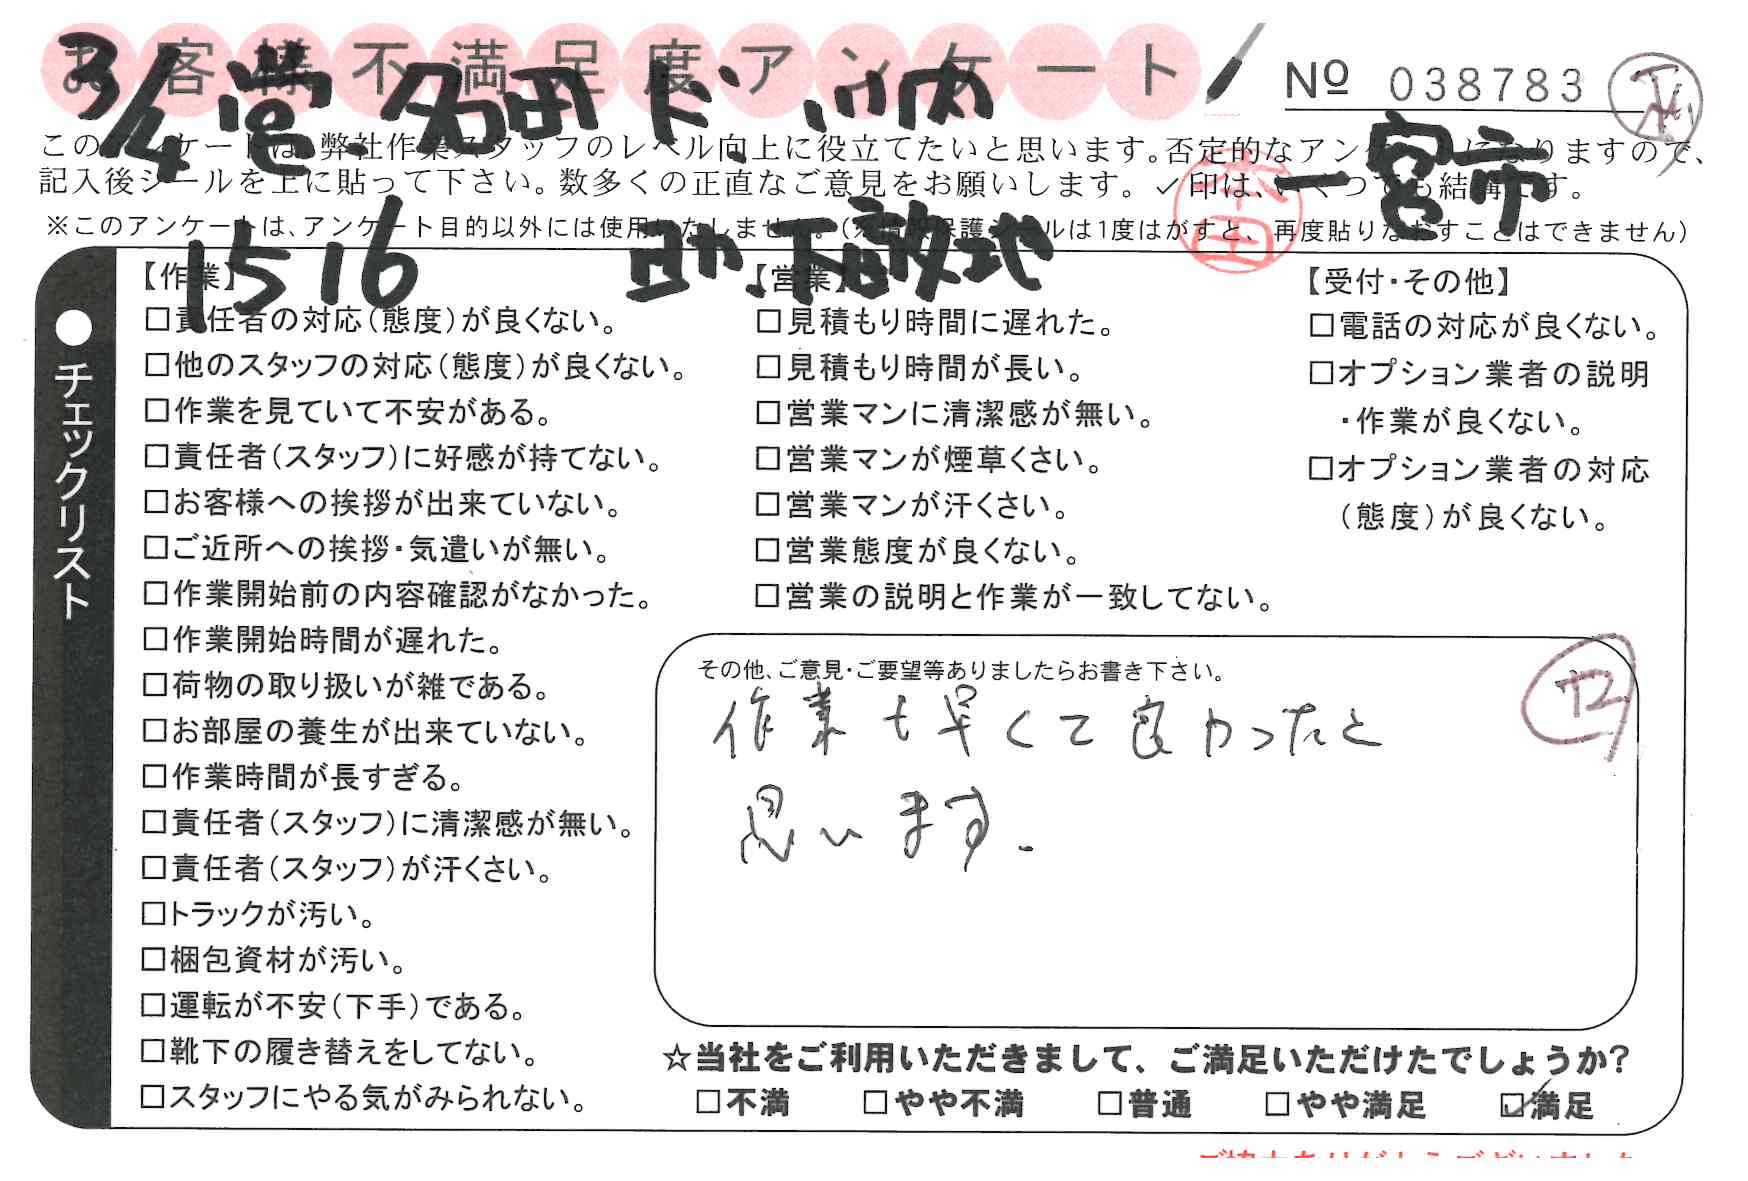 お客様不満足度アンケート
№ 038783
3/4 営 名田 ド、川内
一宮市
このアンケートは、弊社作業スタッフのレベル向上に役立てたいと思います。否定的なアンケートになりますので、
記入後シールを上に貼って下さい。数多くの正直なご意見をお願いします。✓印は、いくつでも結構です。
※このアンケートは、アンケート目的以外には使用いたしません。(※情報保護シールは1度はがすと、再度貼りなおすことはできません)
本田
1516 助、不破、式地
●チェックリスト
【作業】
□責任者の対応(態度)が良くない。
□他のスタッフの対応(態度)が良くない。
□作業を見ていて不安がある。
□責任者(スタッフ)に好感が持てない。
□お客様への挨拶が出来ていない。
□ご近所への挨拶・気遣いが無い。
□作業開始前の内容確認がなかった。
□作業開始時間が遅れた。
□荷物の取り扱いが雑である。
□お部屋の養生が出来ていない。
□作業時間が長すぎる。
□責任者(スタッフ)に清潔感が無い。
□責任者(スタッフ)が汗くさい。
□トラックが汚い。
□梱包資材が汚い。
□運転が不安(下手)である。
□靴下の履き替えをしてない。
□スタッフにやる気がみられない。
【営業】
□見積もり時間に遅れた。
□見積もり時間が長い。
□営業マンに清潔感が無い。
□営業マンが煙草くさい。
□営業マンが汗くさい。
□営業態度が良くない。
□営業の説明と作業が一致してない。
【受付・その他】
□電話の対応が良くない。
□オプション業者の説明
・作業が良くない。
□オプション業者の対応
(態度)が良くない。
その他、ご意見・ご要望等ありましたらお書き下さい。
作業も早くて良かったと
思います.
☆当社をご利用いただきまして、ご満足いただけたでしょうか?
□不満 □やや不満 □普通 □やや満足 ☑満足